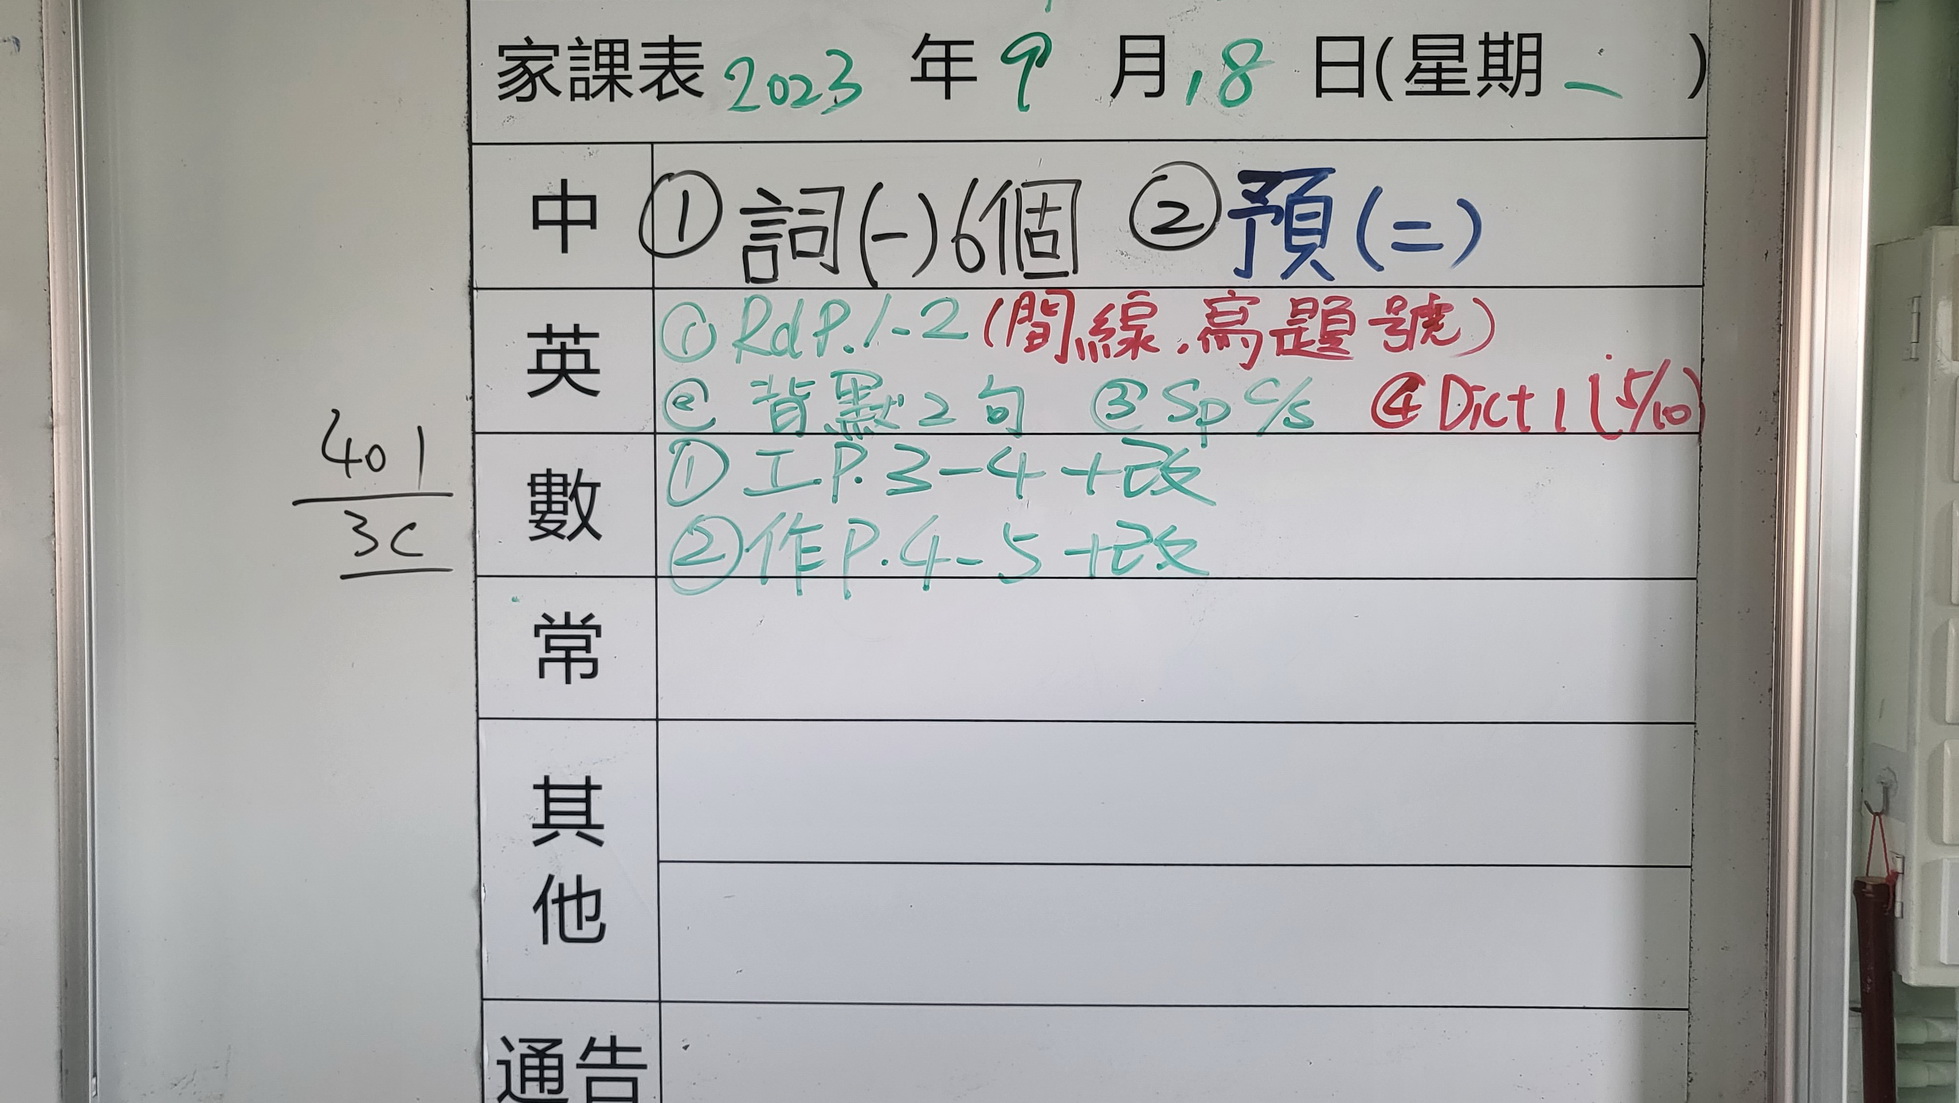 家課表 2023 年 9 月 18 日(星期 一 )
中 ① 詞(一)6個 ② 預(二)
英 ① Rd P.1-2 (間線,寫題號)
② 背默2句 ③ Sp C/S ④ Dict 1 (5/10)
數 ① 工P.3-4 +改
② 作P.4-5 +改
常
其他
通告
401
3C